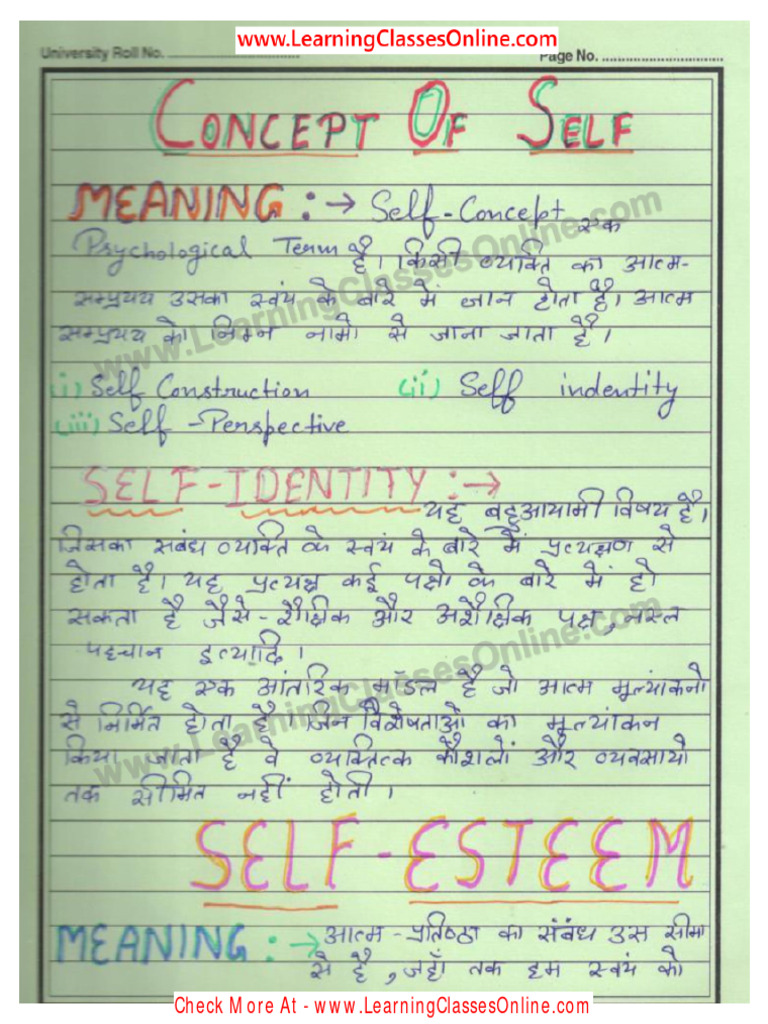 www.LearningClassesOnline.com
University Roll No. ........................
Page No. ........................
CONCEPT OF SELF
MEANING :→ Self-Concept एक
Psychological Term है। किसी व्यक्ति का आत्म-
सम्प्रत्यय उसका स्वंय के बारे में ज्ञान होता है। आत्म
सम्प्रत्यय को निम्न नामो से जाना जाता है।
(i) Self Construction (ii) Self indentity
(iii) Self - Perspective
SELF-IDENTITY :→
यह बहुआयामी विषय है।
जिसका संबंध व्यक्ति के स्वयं के बारे में प्रत्यक्षण से
होता है। यह प्रत्यक्ष कई पक्षो के बारे में हो
सकता है जैसे - शैक्षिक और अशैक्षिक पक्ष, नस्ल
पहचान इत्यादि।
यह एक आंतरिक मॉडल है जो आत्म मूल्यांकनो
से निर्मित होता है। जिन विशेषताओ का मूल्यांकन
किया जाता है वे व्यक्तित्क कौशलों और व्यवसायो
तक सीमित नहीं होती।
SELF-ESTEEM
MEANING :→ आत्म-प्रतिष्ठा का संबंध उस सीमा
से है, जहाँ तक हम स्वयं को
www.LearningClassesOnline.com
www.LearningClassesOnline.com
Check More At - www.LearningClassesOnline.com